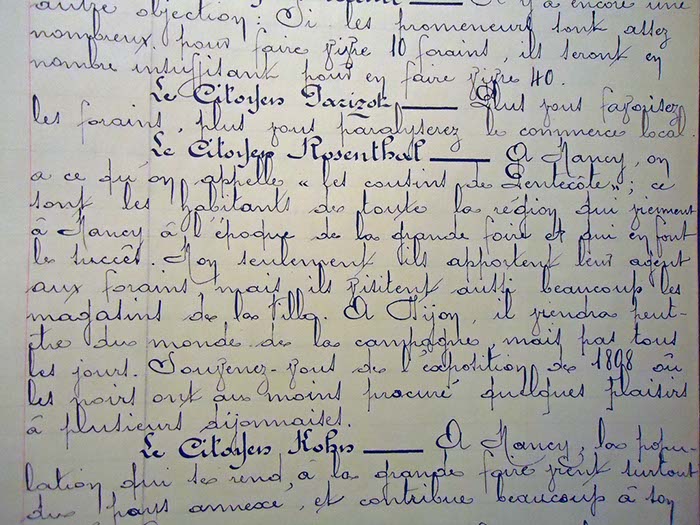 autre objection : Si les promeneurs sont assez
nombreux pour faire vivre 10 forains, ils seront en
nombre insuffisant pour en faire vivre 40.
Le Citoyen Parizot — Plus vous favorisez
les forains, plus vous paralyserez le commerce local
Le Citoyen Rosenthal — A Nancy, on
a ce qu'on appelle « les cousins de Pentecôte » ; ce
sont les habitants de toute la région qui viennent
à Nancy à l'époque de la grande foire et qui en font
le succès. Non seulement ils apportent leur argent
aux forains mais ils visitent aussi beaucoup les
magasins de la ville. A Dijon, il viendra peut-
être du monde de la campagne, mais pas tous
les jours. Souvenez-vous de l'exposition de 1898 où
les noirs ont au moins procuré quelques plaisirs
à plusieurs dijonnaises.
Le Citoyen Kohn — A Nancy, la popu-
lation qui se rend à la grande foire vient surtout
du pays annexé, et contribue beaucoup à son